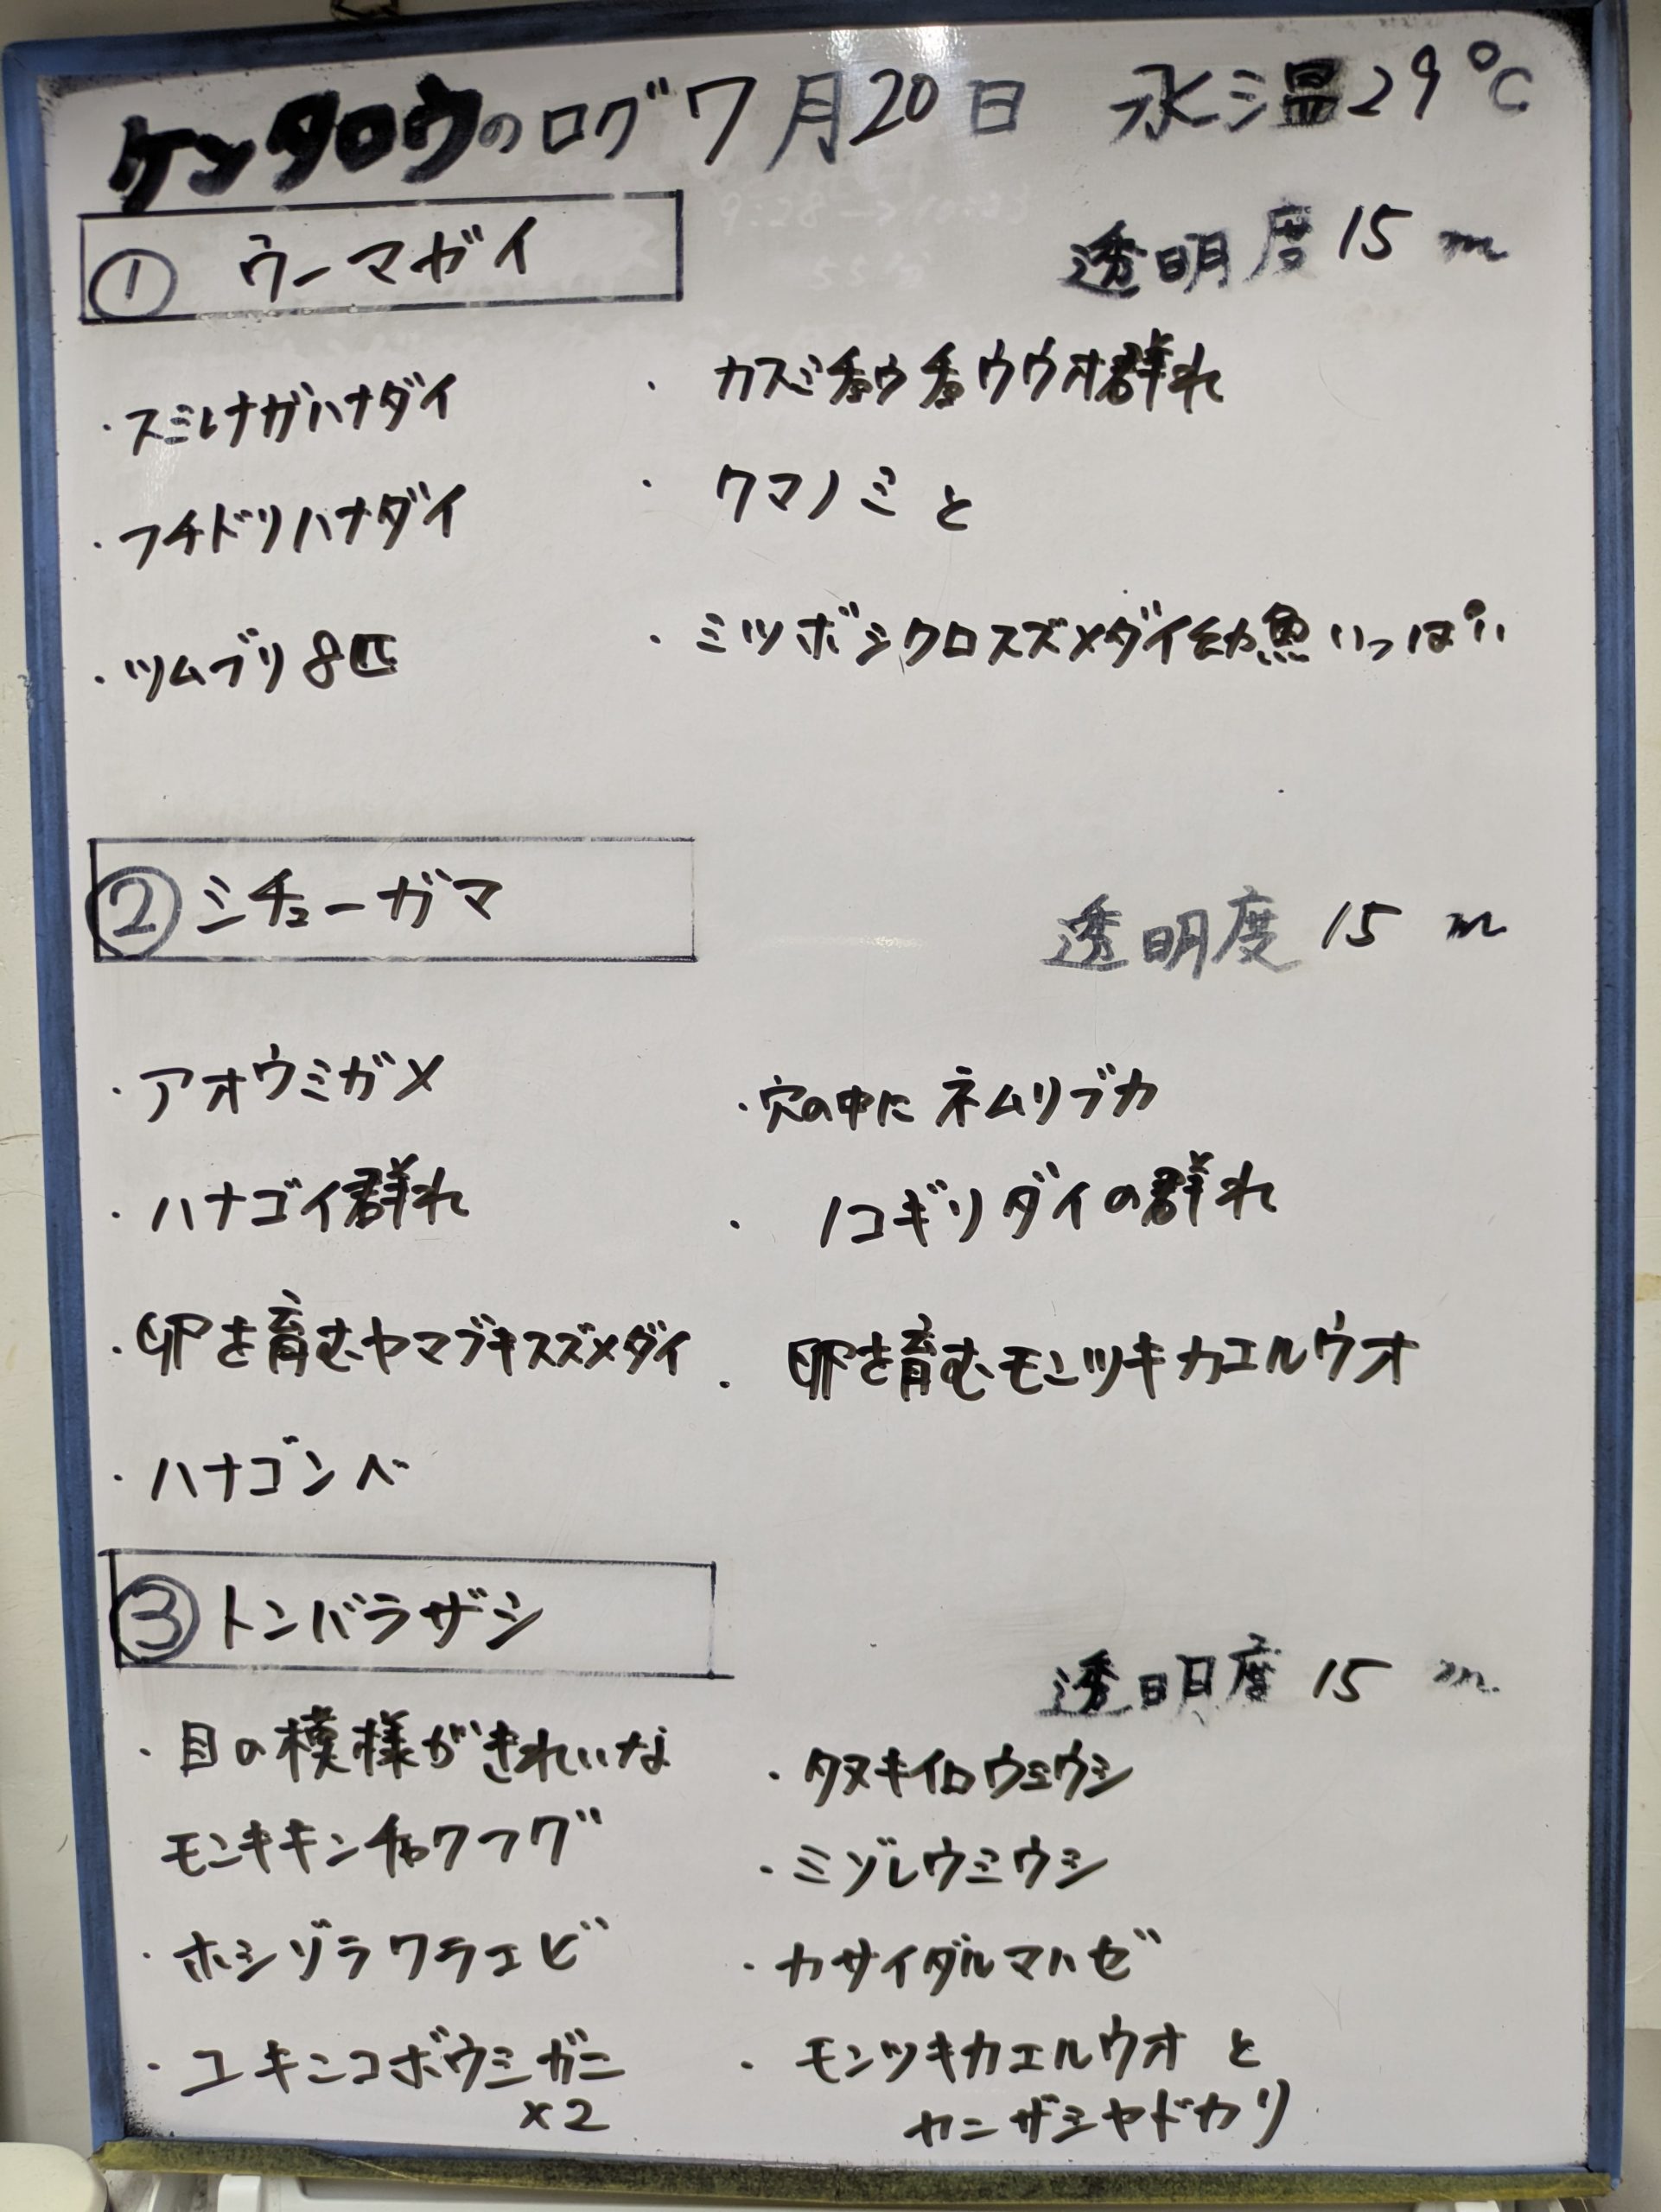 ケンタロウのログ 7月20日 水温29℃
① ウーマガイ
透明度 15 m
・スミレナガハナダイ
・フチドリハナダイ
・ツムブリ8匹
・カスミチョウチョウウオ群れ
・クマノミと
・ミツボシクロスズメダイ幼魚いっぱい
② ミチューガマ
透明度 15 m
・アオウミガメ
・ハナゴイ群れ
・卵を育むヤマブキスズメダイ
・ハナゴンベ
・穴の中にネムリブカ
・ノコギリダイの群れ
・卵を育むモンツキカエルウオ
③ トンバラザシ
透明度 15 m
・目の模様がきれいな
モンキキンチャクフグ
・ホシゾラワラエビ
・ユキンコボウシガニ
×2
・タヌキイロウミウシ
・ミゾレウミウシ
・カサイダルマハゼ
・モンツキカエルウオと
カンザシヤドカリ